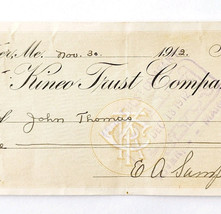 Me. Nov. 30 1912
Kineo Trust Compa
John Thomas
E A Samp